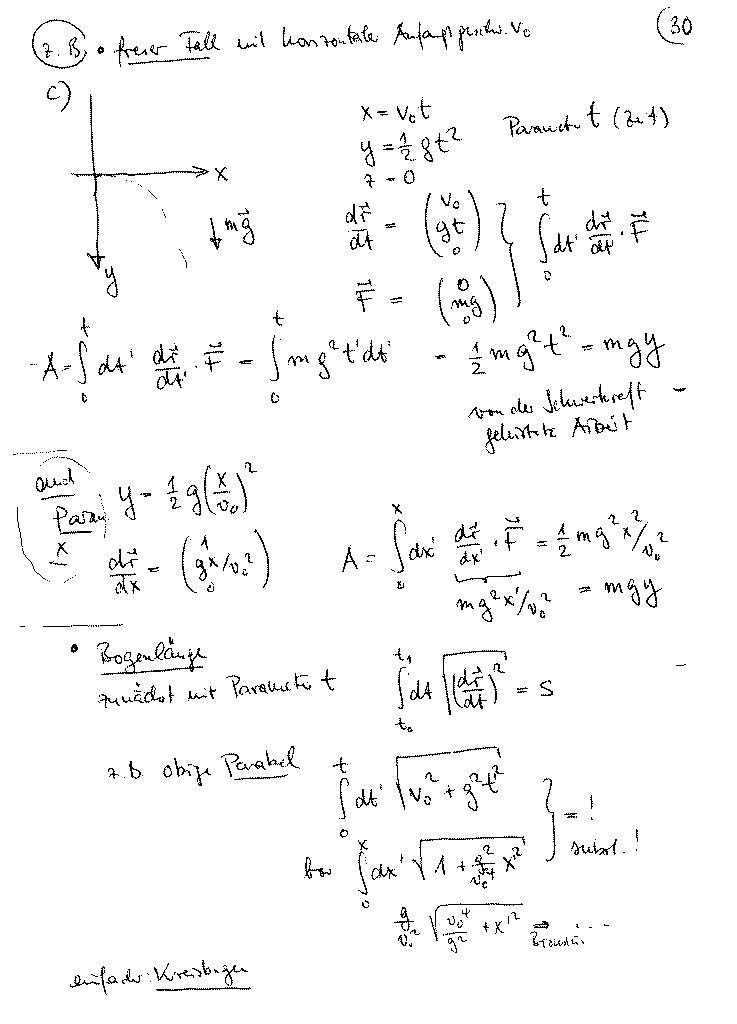 z.B. • freier Fall mit horizontaler Anfangsgeschw. v₀ (30)
c)
x = v₀t
y = ½ gt² Parameter t (Zeit)
z = 0
x
y
mg⃗
dr⃗/dt = (v₀, gt, 0) } ∫₀ᵗ dt' dr⃗/dt' · F⃗
F⃗ = (0, mg, 0)
A = ∫₀ᵗ dt' dr⃗/dt' · F⃗ = ∫₀ᵗ m g² t' dt' = ½ m g² t² = mgy
von der Schwerkraft
geleistete Arbeit
and
Param y = ½ g (x/v₀)²
x
dr⃗/dx = (1, gx/v₀², 0) A = ∫₀ˣ dx' dr⃗/dx' · F⃗ = ½ m g² x²/v₀²
mg²x'/v₀² = mgy
• Bogenlänge
zunächst mit Parameter t ∫_{t₀}^{t₁} dt √(dr⃗/dt)² = s
z.B. obige Parabel ∫₀ᵗ dt' √(v₀² + g²t'²) } = !
bzw ∫₀ˣ dx' √(1 + g²/v₀⁴ x'²) subst. !
g/v₀² √(v₀⁴/g² + x'²) ⇒ ...
einfacher: Kreisbogen